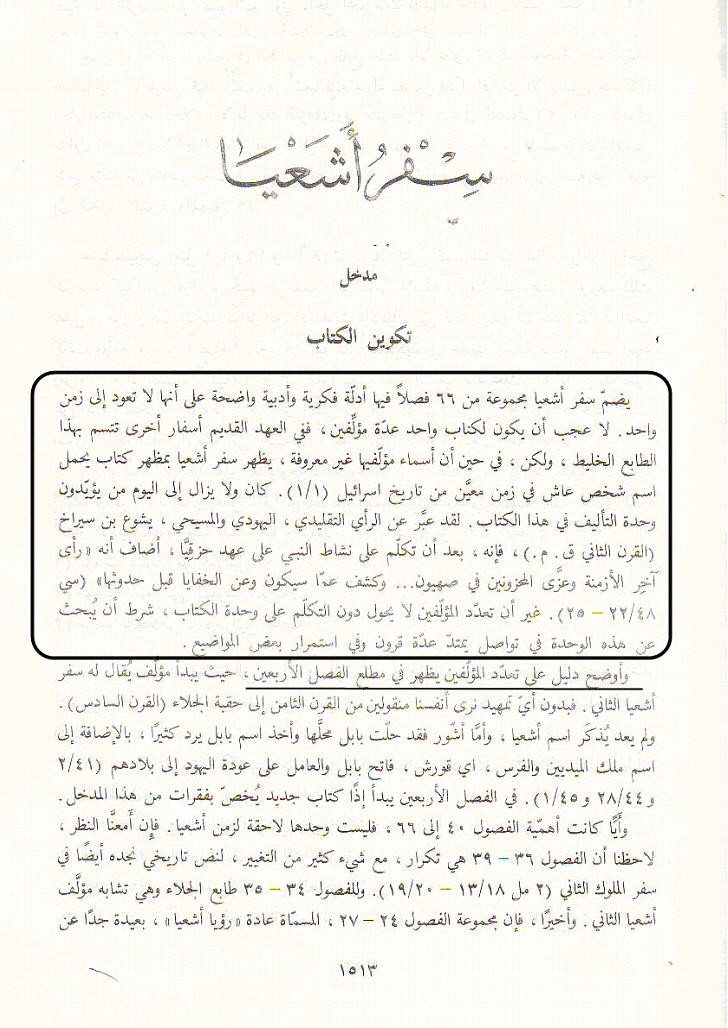 سِفْرُ أَشَعْيَا
مدخل
تكوين الكتاب
يضمّ سفر أشعيا مجموعة من ٦٦ فصلاً فيها أدلّة فكرية وأدبية واضحة على أنها لا تعود إلى زمن
واحد. لا عجب أن يكون لكتاب واحد عدّة مؤلِّفين، ففي العهد القديم أسفار أخرى تتسم بهذا
الطابع الخليط، ولكن، في حين أن أسماء مؤلّفيها غير معروفة، يظهر سفر أشعيا بمظهر كتاب يحمل
اسم شخص عاش في زمن معيَّن من تاريخ اسرائيل (١/١). كان ولا يزال إلى اليوم من يؤيّدون
وحدة التأليف في هذا الكتاب. لقد عبَّر عن الرأي التقليدي، اليهودي والمسيحي، يشوع بن سيراخ
(القرن الثاني ق. م.)، فإنه، بعد أن تكلّم على نشاط النبي على عهد حزقيَّا، أضاف أنه «رأى
آخِر الأزمنة وعزَّى المحزونين في صهيون... وكشف عمّا سيكون وعن الخفايا قبل حدوثها» (سي
٢٢/٤٨ – ٢٥). غير أن تعدّد المؤلّفين لا يحول دون التكلّم على وحدة الكتاب، شرط أن يُبحث
عن هذه الوحدة في تواصل يمتدّ عدّة قرون وفي استمرار بعض المواضيع.
وأوضح دليل على تعدّد المؤلّفين يظهر في مطلع الفصل الأربعين، حيث يبدأ مؤلَّف يُقال له سفر
أشعيا الثاني. فبدون أيّ تمهيد نرى أنفسنا منقولين من القرن الثامن إلى حقبة الجلاء (القرن السادس).
ولم يعد يُذكَر اسم أشعيا، وأمَّا أشّور فقد حلّت بابل محلّها وأخذ اسم بابل يرد كثيرًا، بالإضافة إلى
اسم ملك الميديين والفرس، اي قورش، فاتح بابل والعامل على عودة اليهود إلى بلادهم (٢/٤١
و ٢٨/٤٤ و ١/٤٥). في الفصل الأربعين يبدأ إذًا كتاب جديد يُخصّ بفقرات من هذا المدخل.
وأيًّا كانت أهمّية الفصول ٤٠ إلى ٦٦، فليست وحدها لاحقة لزمن أشعيا. فإن أمعنَّا النظر،
لاحظنا أن الفصول ٣٦ – ٣٩ هي تكرار، مع شيء كثير من التغيير، لنص تاريخي نجده أيضًا في
سفر الملوك الثاني (٢ مل ١٣/١٨ – ١٩/٢٠). وللفصول ٣٤ – ٣٥ طابع الجلاء وهي تشابه مؤلَّف
أشعيا الثاني. وأخيرًا، فإن مجموعة الفصول ٢٤ – ٢٧، المسمّاة عادة «رؤيا أشعيا»، بعيدة جدًا عن
١٥١٣